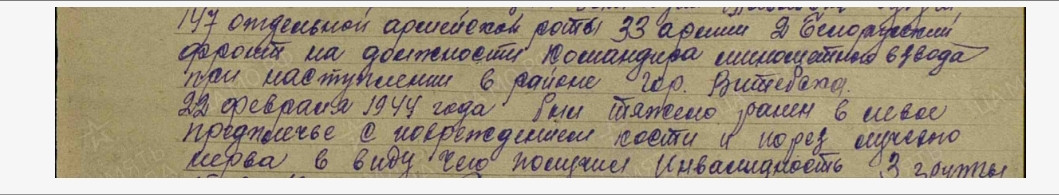 147 отдельной армейской роты 33 армии 2 Белорусский
фронт на должности командира минометного взвода
при наступлении в районе гор. Витебска.
22 февраля 1944 года был тяжело ранен в левое
предплечье с повреждением кости и порез лучевого
нерва в виду чего получил инвалидность 3 группы